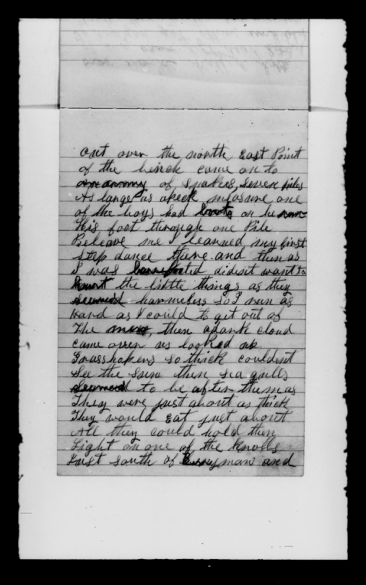 out over the north East Point
of the bench came on to
an army of snakes, seven piles
As large as a peck measure one
of the boys had boots on he ran
his foot through one Pile
Believe me I learned my first
step dance there and then as
I was barefooted dident want to
hurt the little things as they
seamed harmeless so I run as
hard as I could to get out of
The mess, then a dark cloud
came over us looked up
Grasshopers so thick couldent
See the Sun then sea gulls
seamed to be after them as
They were just about as thick
They would eat just about
All they could hold then
Light on one of the knolls
Just South of Berrymans and